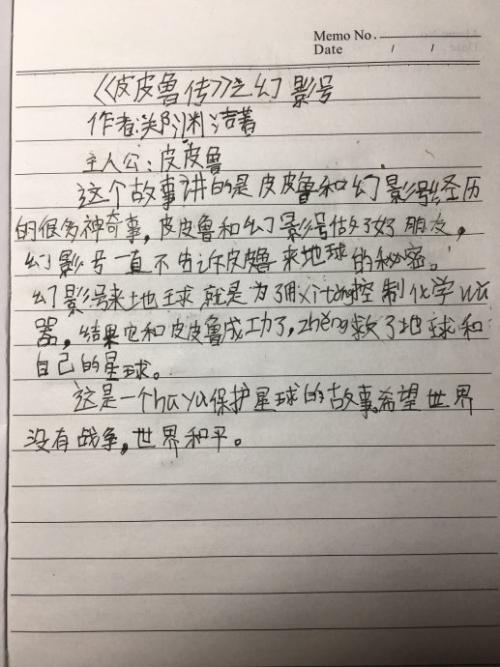 Memo No.
Date / /
《皮皮鲁传》之幻影号
作者:郑渊洁著
主人公:皮皮鲁
这个故事讲的是皮皮鲁和幻影号经历
的很多神奇事,皮皮鲁和幻影号做了好朋友,
幻影号一直不告诉皮皮鲁来地球的秘密。
幻影号来地球就是为了用xitong控制化学wu
器,结果它和皮皮鲁成功了,zhěng救了地球和
自己的星球。
这是一个hu yu保护星球的故事,希望世界
没有战争,世界和平。